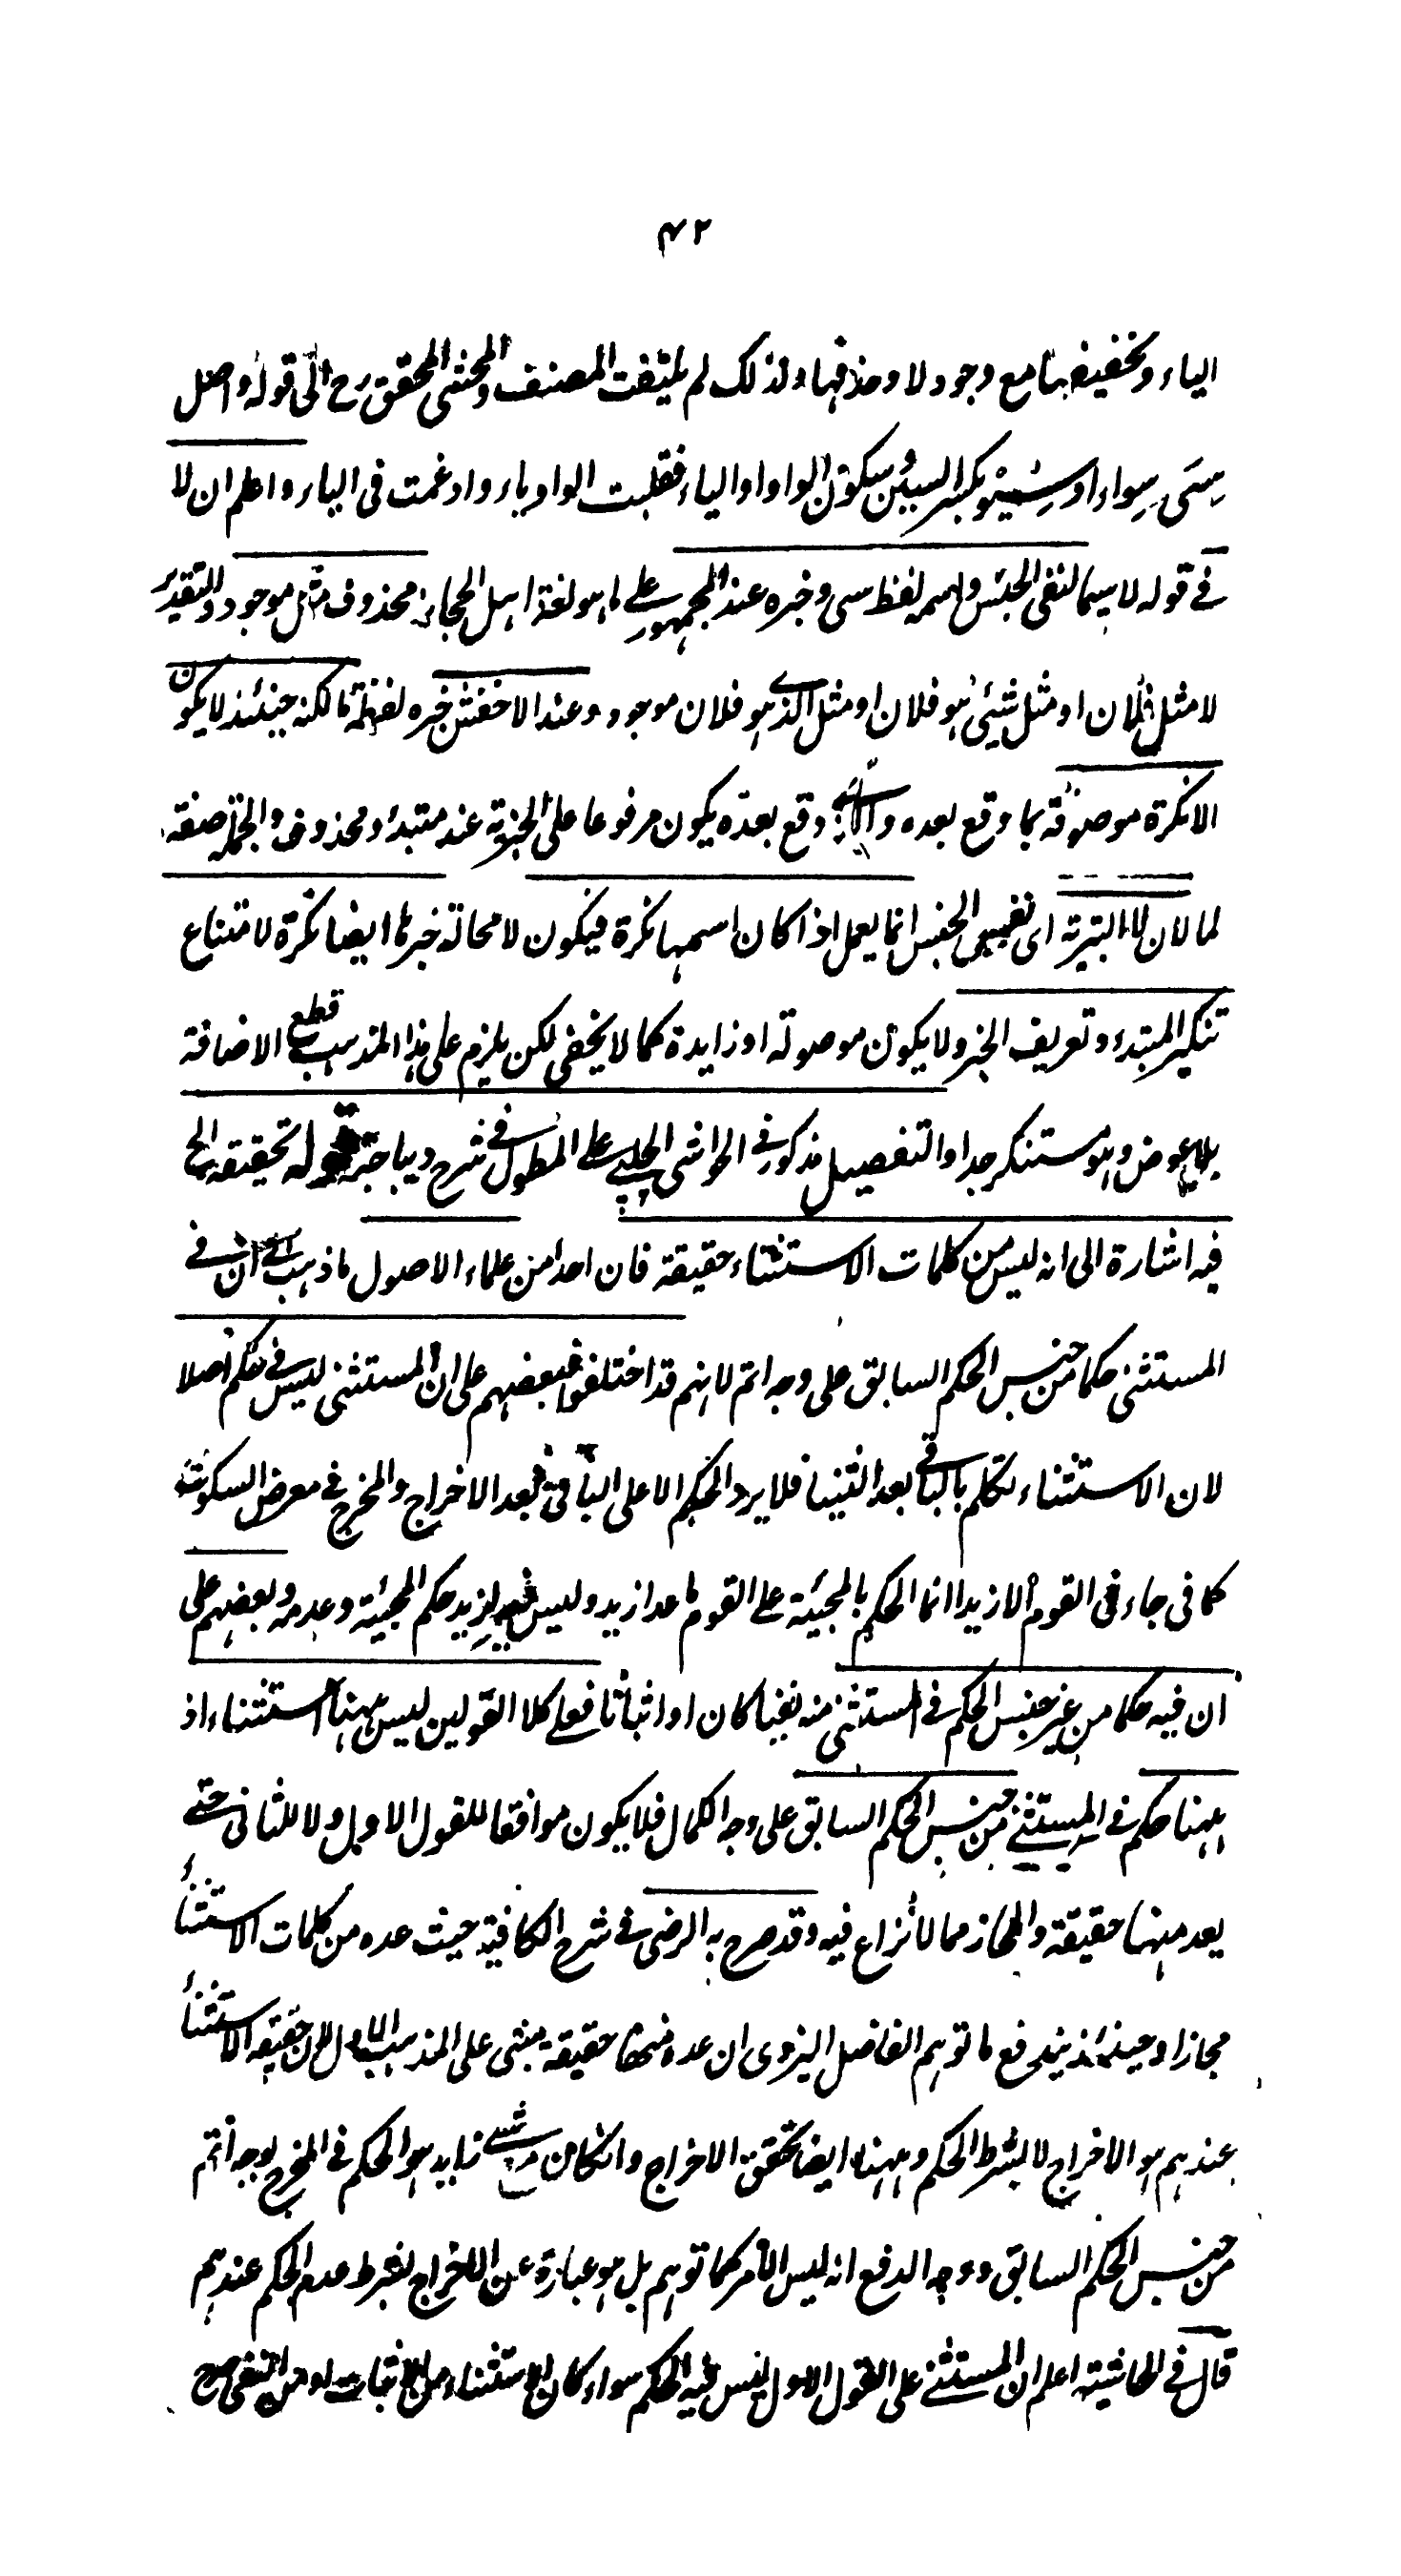 ۴۲
الياء وتخفيفها مع وجود لا وحذفها ولذلك لم يلتفت المصنف والمحشى المحقق رح الى قوله واصل
سى سواء او سيو بكسر السين وسكون الواو او الياء فقلبت الواو ياء وادغمت فى الياء واعلم ان لا
فے قوله لا سيما لنفى الجنس واسمه لفظ سى وخبره عند الجمهور علے ما هو لغة اهل الحجاز محذوف مثل موجود والتقدير
لا مثل فلان او مثل شيئ هو فلان او مثل الذے هو فلان موجود وعند الاخفش خبره لفظة ما لكنه حينئذ لا يكون
الا نكرة موصوفة بما وقع بعده و وقع بعده يكون مرفوعا على الخبرية عند مبتدء محذوف والجملة صفة
لما لان لا التبرية اى نفى الجنس انما يعمل اذا كان اسمها نكرة فيكون لا محالة خبرها ايضا نكرة لامتناع
تنكير المبتدء وتعريف الخبر ولا يكون موصولة او زايدة كما لا يخفى لكن يلزم على هذا المذهب قطع الاضافة
بلا عوض وهو مستنكر جدا والتفصيل مذكور فے الحواشى الچلپے علے المطول فے شرح ديباجة قوله تحقيقه الخ
فيه اشارة الى انه ليس من كلمات الاستثناء حقيقة فان احدا من علماء الاصول ما ذهب الے ان فے
المستثنى حكما من جنس الحكم السابق على وجه اتم لانهم قد اختلفوا فبعضهم على ان المستثنى ليس فے حكم اصلا
لان الاستثناء تكلم بالباقى بعد الثنيا فلا يرد الحكم الا على الباقى بعد الاخراج والمخرج فے معرض السكوت
كما فى جاءنى القوم الا زيدا انما الحكم بالمجيئة علے القوم ما عدا زيد وليس فيه لزيد حكم المجيئة وعدمه وبعضهم على
ان فيه حكما من غير جنس الحكم فے المستثنى منه نفيا كان او اثباتا فعلے كلا القولين ليس ههنا استثناء اذ
ههنا حكم فے المستثنے من جنس الحكم السابق على وجه الكمال فلا يكون موافقا للقول الاول ولا للثانى حتے
يعد منها حقيقة والمجاز مما لا نزاع فيه وقد صرح به الرضى فے شرح الكافية حيث عده من كلمات الاستثناء
مجازا وحينئذ يندفع ما توهم الفاضل اليزدى ان عده منها حقيقة مبنى على المذهب الاول لان حقيقة الاستثناء
عندهم هو الاخراج لا بشرط الحكم وههنا ايضا تحقق الاخراج وانكان من شے زايد هو الحكم فے المخرج بوجه اتم
من جنس الحكم السابق ووجه الدفع انه ليس الامر كما توهم بل هو عبارة عن الاخراج بشرط عدم الحكم عندهم
قال فے الحاشية اعلم ان المستثنے على القول الاول ليس فيه الحكم سواء كان الاستثناء من الاثبات او من النفى صرح